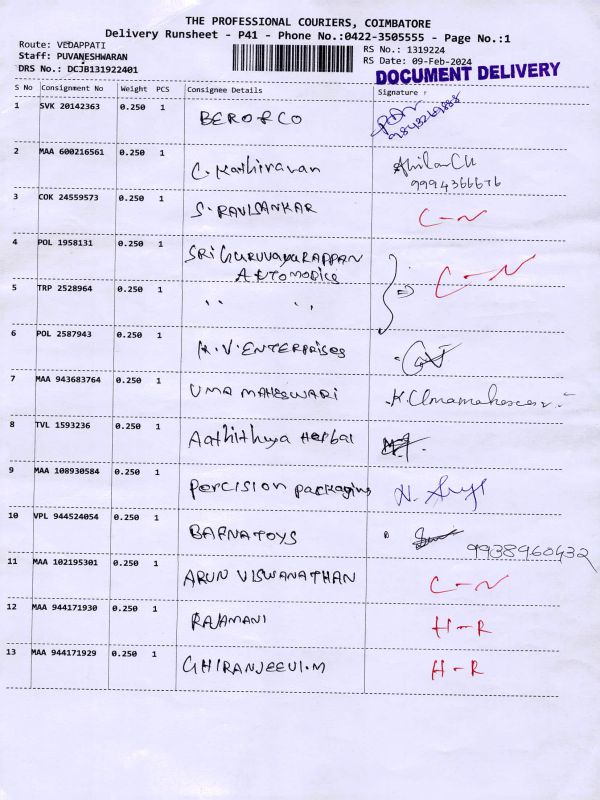 THE PROFESSIONAL COURIERS, COIMBATORE
Delivery Runsheet - P41 - Phone No.:0422-3505555 - Page No.:1
Route: VEDAPPATI
RS No.: 1319224
Staff: PUVANESHWARAN
RS Date: 09-Feb-2024
DRS No.: DCJB131922401
DOCUMENT DELIVERY
S No Consignment No Weight PCS Consignee Details Signature :
1 SVK 20142363 0.250 1 BEROFCO
2 MAA 600216561 0.250 1 C. Kathiravan
9994366676
3 COK 24559573 0.250 1 S. RAVISANKAR C-N
4 POL 1958131 0.250 1 SRI GURUVAYURAPPAN
AUTOMOBILES C-N
5 TRP 2528964 0.250 1 " "
6 POL 2587943 0.250 1 K.V. ENTERPRISES
7 MAA 943683764 0.250 1 UMA MAHESWARI K. Umamaheswari
8 TVL 1593236 0.250 1 Aathithya Herbal
9 MAA 108930584 0.250 1 Percision packaging
10 VPL 944524054 0.250 1 BAFNATOYS 9938960432
11 MAA 102195301 0.250 1 ARUN VISWANATHAN C-N
12 MAA 944171930 0.250 1 RAJAMANI H-R
13 MAA 944171929 0.250 1 CHIRANJEEVI.M H-R